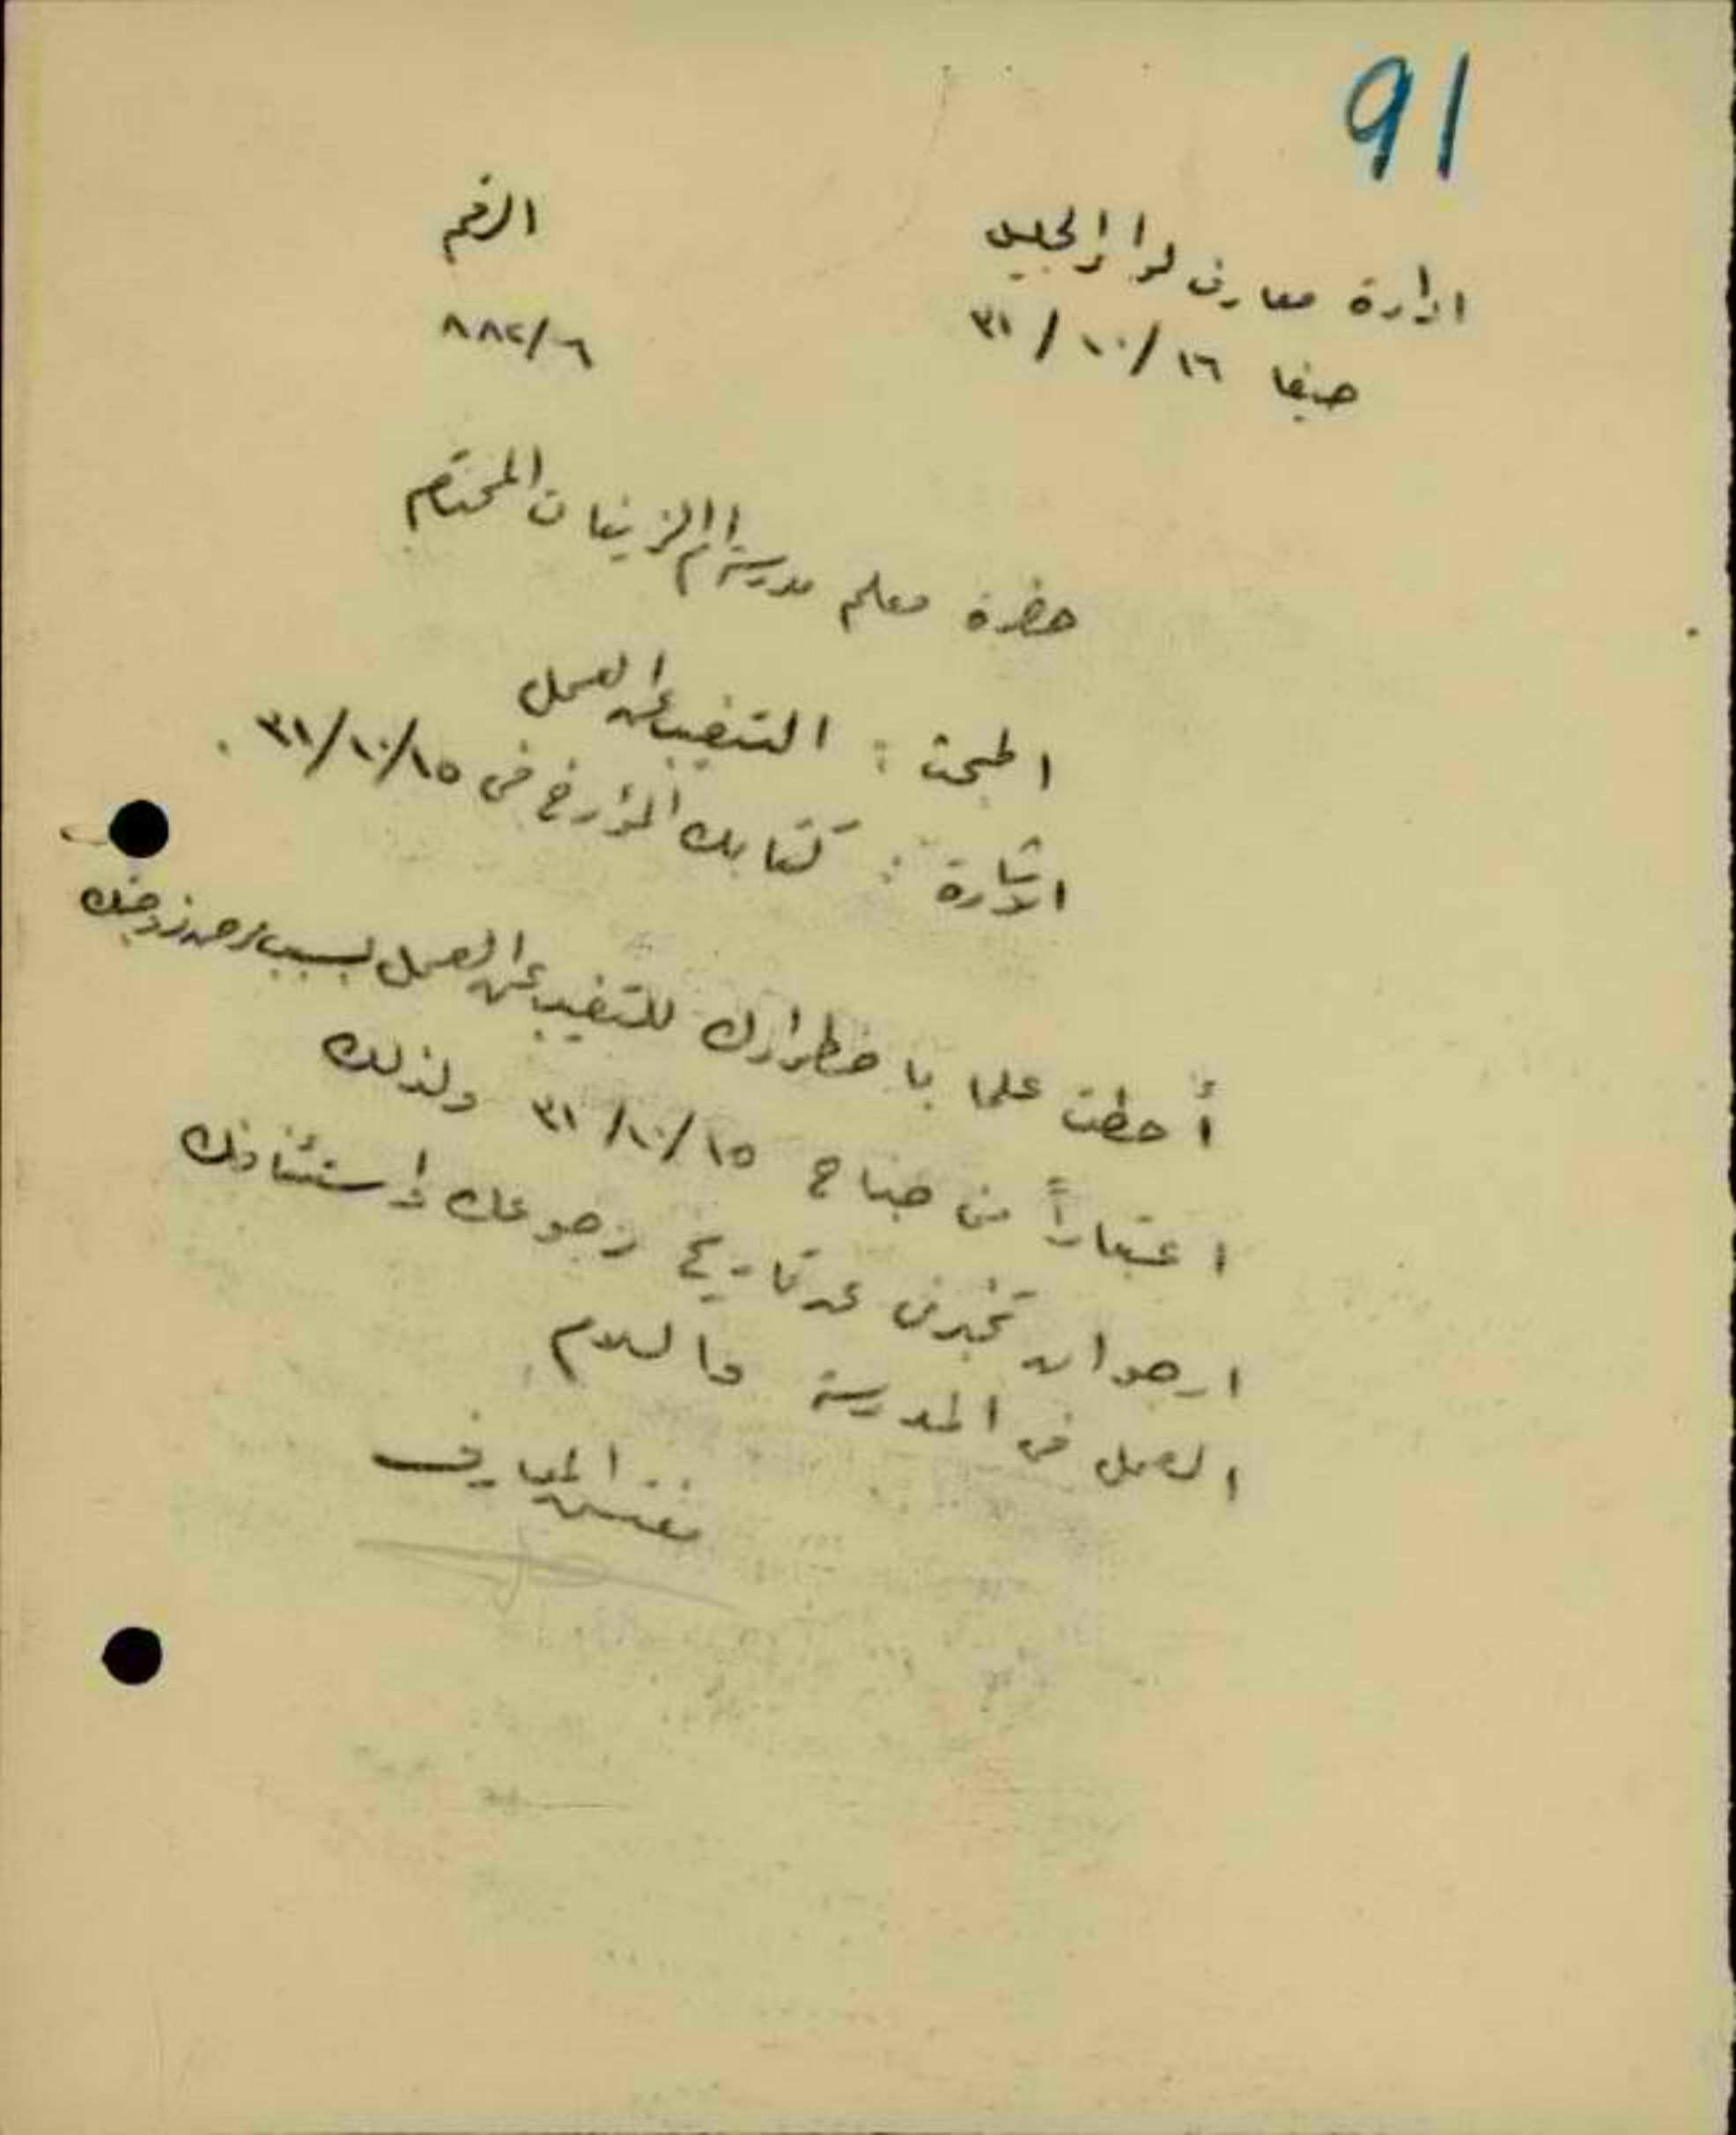 91
ادارة معارف لواء الجليل
الرقم
حيفا ١٦/١٠/٣١
٨٨٢/٦
حضرة معلم مدرسة ام الزينات المحترم
المبحث : التغيب عن العمل
الاشارة : كتابك المؤرخ في ١٥/١٠/٣١ .
أحطت علما باضطرارك للتغيب عن العمل بسبب مرض زوجتك
اعتباراً من صباح ١٥/١٠/٣١ ولذلك
ارجو ان تخبرني عن تاريخ رجوعك لإستئنافك
العمل في المدرسة والسلام
مفتش المعارف